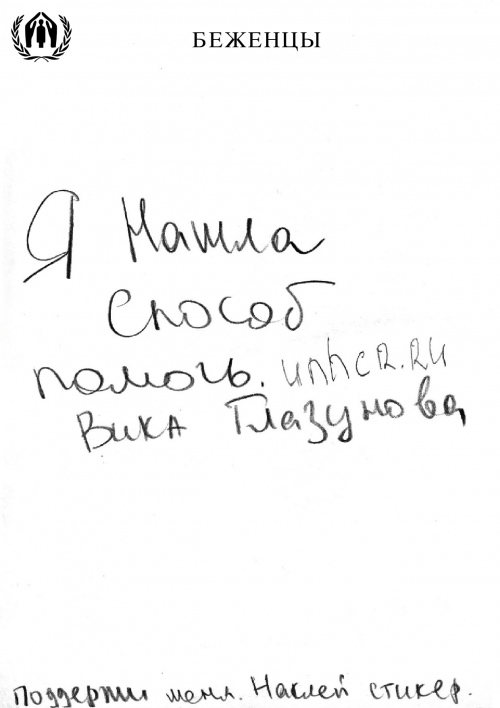 БЕЖЕНЦЫ
Я Нашла
способ
помочь. unhcr.ru
Вика Глазунова
Поддержи меня. Наклей стикер.